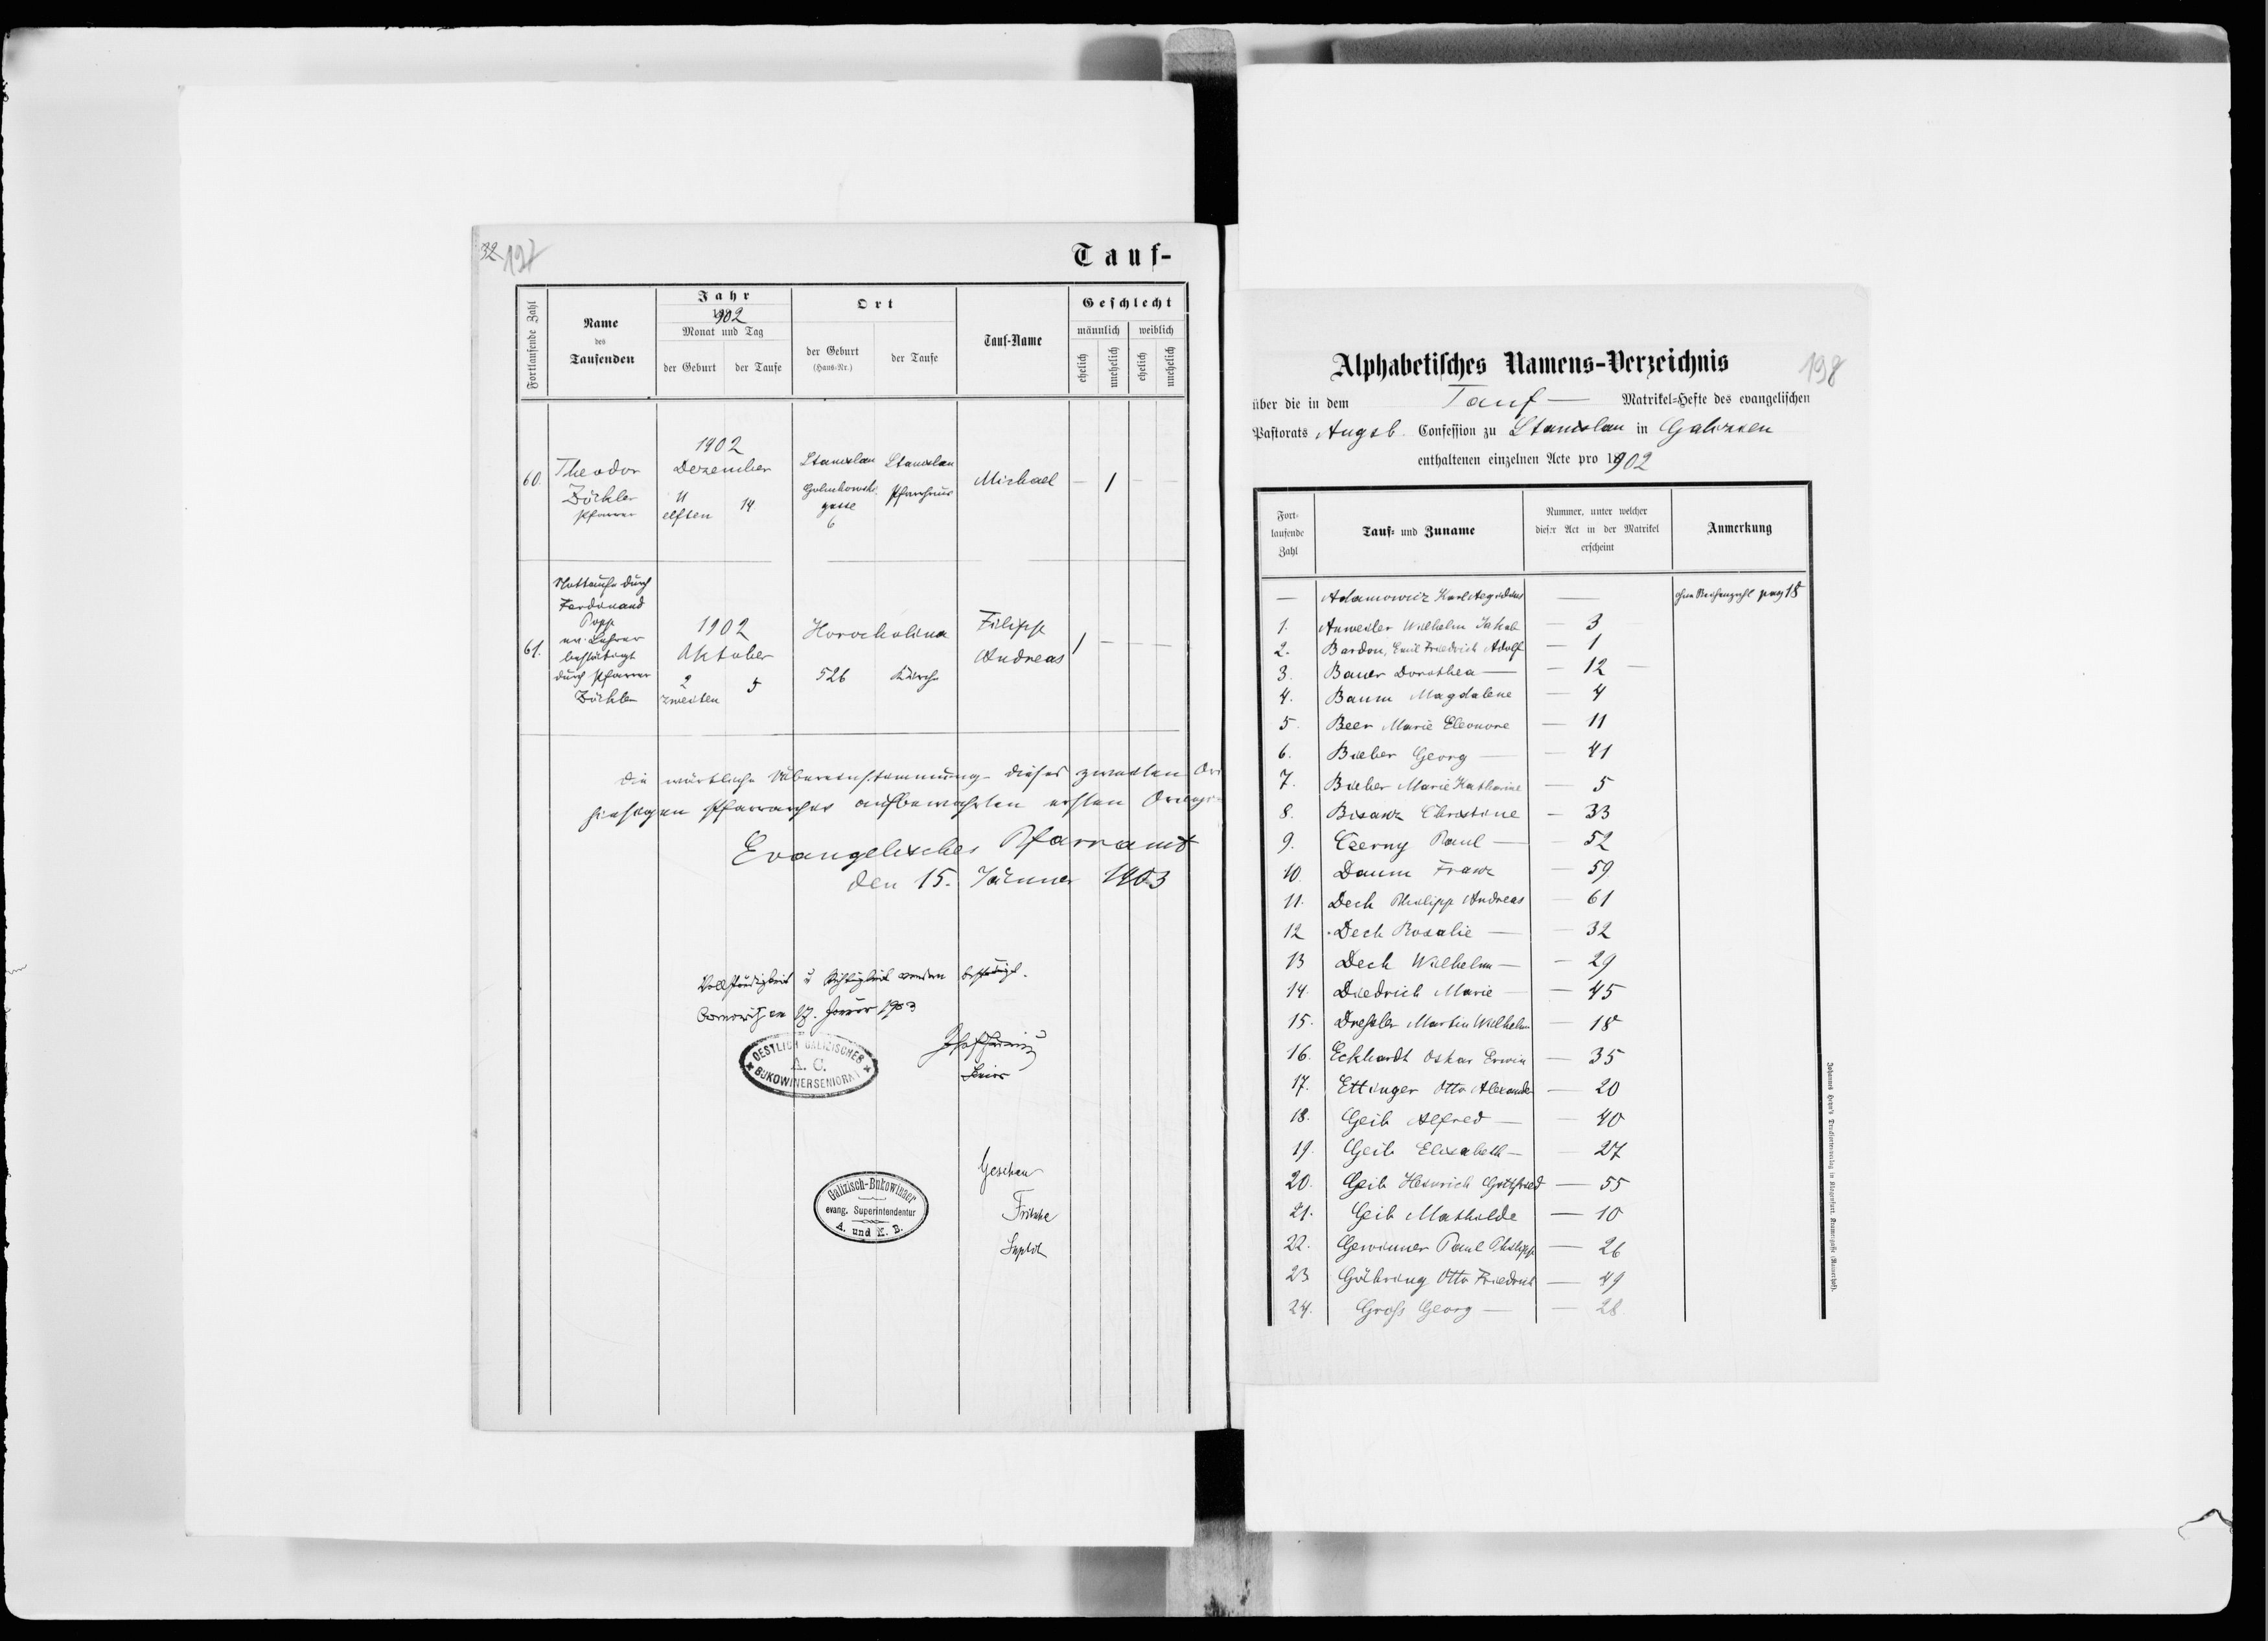 32 197
Tauf-
Fortlaufende Zahl
Name
des
Taufenden
Jahr
1902
Monat und Tag
der Geburt
der Taufe
Ort
der Geburt
(Haus-Nr.)
der Taufe
Tauf-Name
Geschlecht
männlich
weiblich
ehelich
unehelich
ehelich
unehelich
1902
60. Theodor Dezember Stanislau Stanislau Michael — 1 — —
Zöckler 11 14 Pfarrhaus
Pfarrer elften gasse
6
Nottaufe durch
Ferdinand
Popp
ev. Lehrer
bestätigt
durch Pfarrer
Zöckler
61.
1902
Oktober
2 5
zweiten
Horocholina
526 Kirche
Filipp
Andreas
1 — — —
Die wörtliche Übereinstimmung dieses zweiten Ori
hiesigen Pfarrarchiv aufbewahrten ersten Origi-
Evangelisches Pfarramt
den 15. Jänner 1903
Vollständigkeit u Richtigkeit werden bestätigt.
OESTLICH GALIZISCHER
A. C.
BUKOWINERSENIORAT
Gesehen
Fritsche
Suptdt
Galizisch-Bukowinaer
evang. Superintendentur
A. und H. B.
198
Alphabetisches Namens-Verzeichnis
über die in dem Tauf — Matrikel-Hefte des evangelischen
Pastorats Augsb. Confession zu Stanislau in Galizien
enthaltenen einzelnen Acte pro 1902
Fort-
laufende
Zahl
Tauf- und Zuname
Nummer, unter welcher
dieser Act in der Matrikel
erscheint
Anmerkung
— Adamowicz Karl Aegidius — ohne Reihenzahl pag 18
1. Anweiler Wilhelm Jakob — 3
2. Bardon, Emil Friedrich Adolf — 1
3. Bauer Dorothea — 12 —
4. Baum Magdalene — 4
5. Beer Marie Eleonore — 11
6. Bieber Georg — 41
7. Bieber Marie Katharine — 5
8. Bisanz Christine — 33
9. Czerny Paul — 52
10. Daum Franz — 59
11. Dech Philipp Andreas — 61
12. Dech Rosalie — 32
13 Dech Wilhelm — 29
14. Diedrich Marie — 45
15. Dreßler Martin Wilhelm — 18
16. Eckhardt Oskar Erwin — 35
17. Ettinger Otto Alexander — 20
18. Geib Alfred — 40
19. Geib Elisabeth — 27
20. Geib Heinrich Gottfried — 55
21. Geib Mathilde — 10
22. Gewinner Paul Philipp — 26
23 Göhring Otto Friedrich — 49
24. Groß Georg — 28